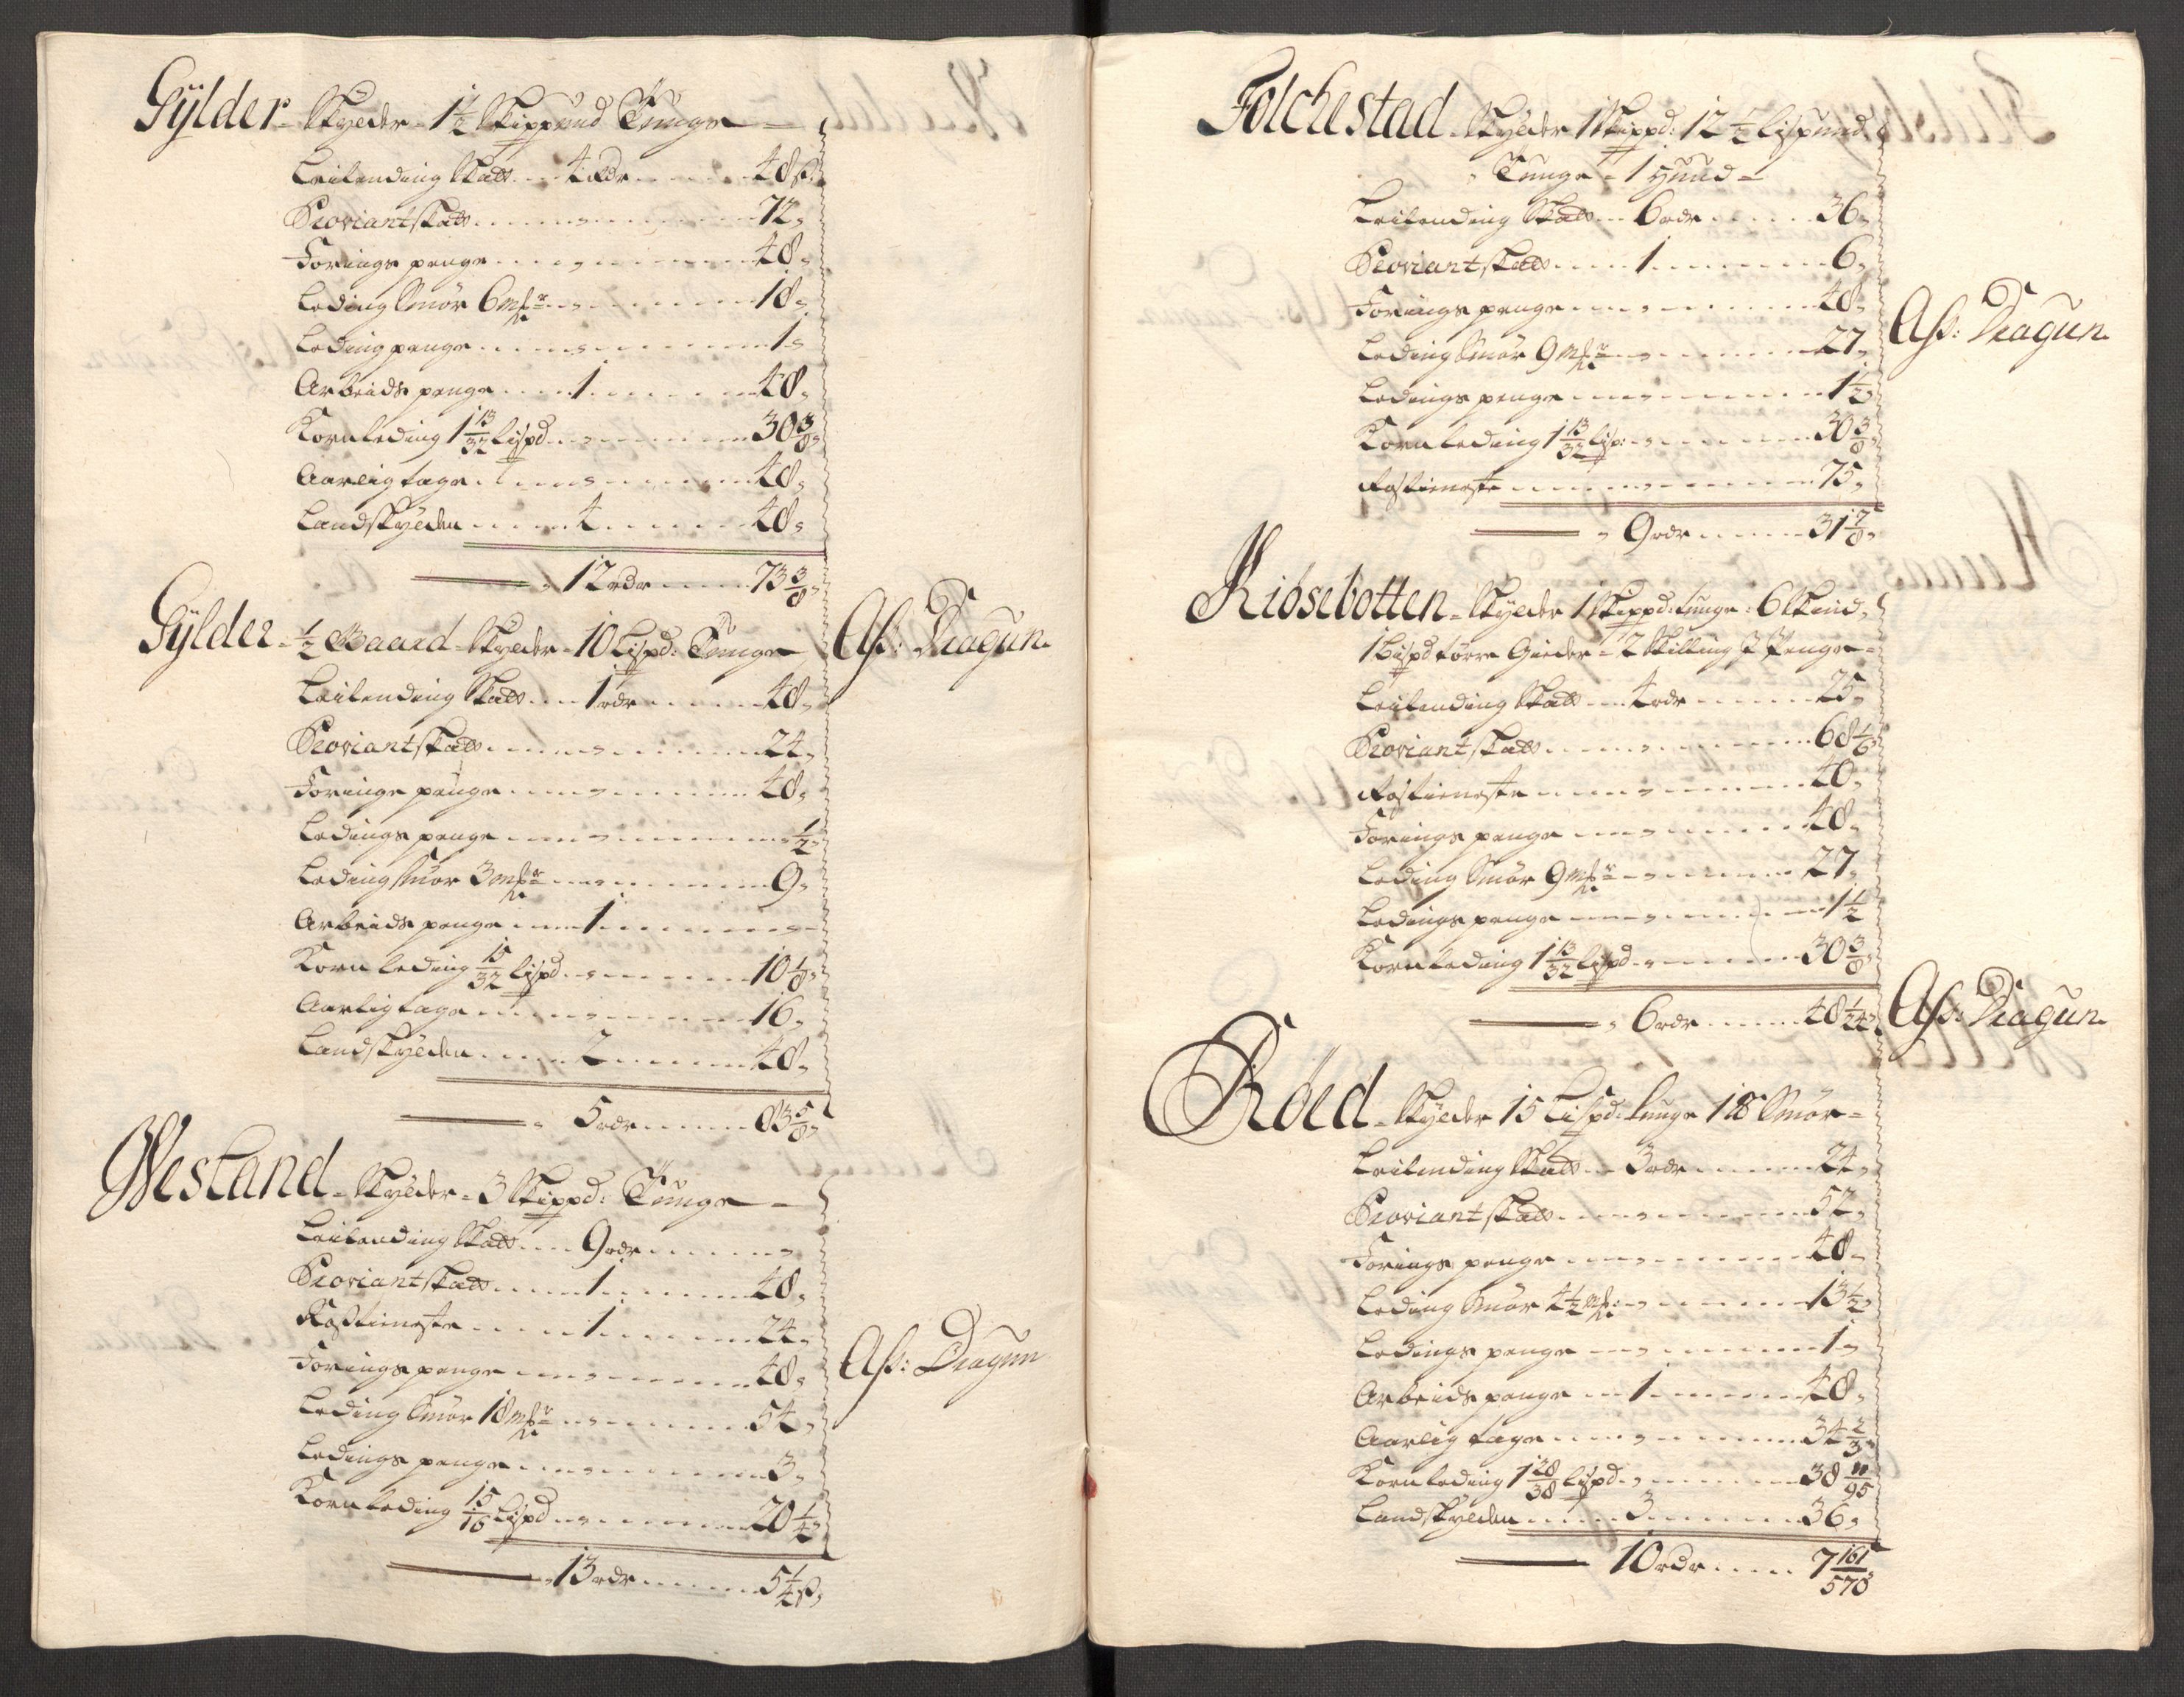 Gÿlder – Skylder – 1 1/2 Skippund Tunge –
Leilending Skatt . . . 4 rdr . . . . . . 48 ß
Proviantskatt . . . . . . . . . 72 „
Foringspenge . . . . . . . . . 48 „
Leding Smør 6 mkr . . . . . . . . 18 „
Ledingpenge . . . . . . . . . 1 „
Arbeidspenge . . . . 1 . . . . . 48 „
Kornleding 1 13/32 lispd . . . . . . 30 3/8 „
Aarligtage . . . . . . . . . 48 „
Landskylden . . . . 4 . . . . . 48 „
„ 12 rdr . . . . 73 3/8 „
Gÿlder – 1/2 Gaard – Skylder – 10 Lispd: Tunge Afs: Dragun
Leilending Skatt . . . 1 rdr . . . . . 48 „
Proviantskatt . . . . . . . . . 24 „
Foringspenge . . . . . . . . . 48 „
Ledingspenge . . . . . . . . . 1/2 „
Leding Smør 3 mkr . . . . . . . . 9 „
Arbeidspenge . . . 1 . . . . . . „
Kornleding 15/32 lispd . . . . . . 10 1/8 „
Aarligtage . . . . . . . . . 16 „
Landskylden . . . . 2 . . . . . 48 „
„ 5 rdr . . . . 83 5/8 „
Westand – Skylder – 3 Skippd: Tunge –
Leilending Skatt . . . 9 rdr . . . . . „
Proviantskatt . . . . 1 . . . . . 48 „
Rostieneste . . . . 1 . . . . . 24 „
Foringspenge . . . . . . . . . 48 „
Afs: Dragun
Leding Smør 18 mkr . . . . . . . . 54 „
Ledingspenge . . . . . . . . . 3 „
Kornleding 15/16 lispd . . . . . . 20 1/4 „
„ 13 rdr . . . . 5 1/4 ß „
Folchestad – Skylder 1 Skippd: 12 1/2 lispund
Tunge – 1 Huud –
Leilending Skatt . . . 6 rdr . . . . . 36 „
Proviantskatt . . . . 1 . . . . . 6 „
Foringspenge . . . . . . . . . 48 „
Afs: Dragun
Leding Smør 9 mkr . . . . . . . . 27 „
Ledingspenge . . . . . . . . . 1 1/2 „
Kornleding 1 13/32 lisp: . . . . . . 30 3/8 „
Rostieneste . . . . . . . . . 75 „
„ 9 rdr . . . . 31 7/8 „
Kiosebotten – Skylder 1 Skippd: Tunge : 6 Skind „
1 Bispd tørre Gieder – 2 Skilling J Penge –
Leilending Skatt . . . 4 rdr . . . . . 25 „
Proviantskatt . . . . . . . . . 68 1/6 „
Rostieneste . . . . . . . . . 40 „
Foringspenge . . . . . . . . . 48 „
Leding Smør 9 mkr . . . . . . . . 27 „
Ledingspenge . . . . . . . . . 1 1/2
Kornleding 1 13/32 lispd . . . . . . 30 3/8 „
„ 6 rdr . . . . 48 1/24 „ Afs: Dragun
Röed – Skylder 15 Lispd: Tunge 1 ℔ Smör –
Leilending Skatt . . . 3 rdr . . . . . 24 „
Proviantskatt . . . . . . . . . 52 „
Foringspenge . . . . . . . . . 48 „
Leding Smør 4 1/2 mk: . . . . . . . 13 1/2 „
Ledingspenge . . . . . . . . . 1 „
Arbeidspenge . . . 1 . . . . . . 48 „
Aarligtage . . . . . . . . . 34 2/3 „
Kornleding 1 28/38 lispd . . . . . . 38 11/95
Landskylden . . . . 3 . . . . . 36 „
10 rdr . . . . 7 161/570 „